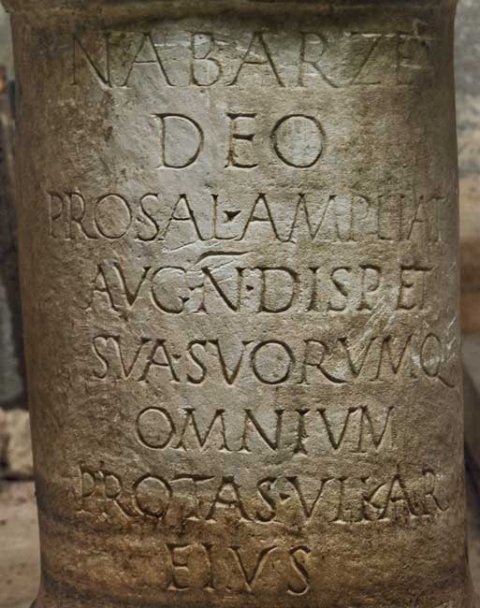 NABARZE
DEO
PROSAL·AMPLIAT
AVG·N̅·DISP·ET
SVA·SVORVMQ
OMNIVM
PROTAS·VIKAR
EIVS